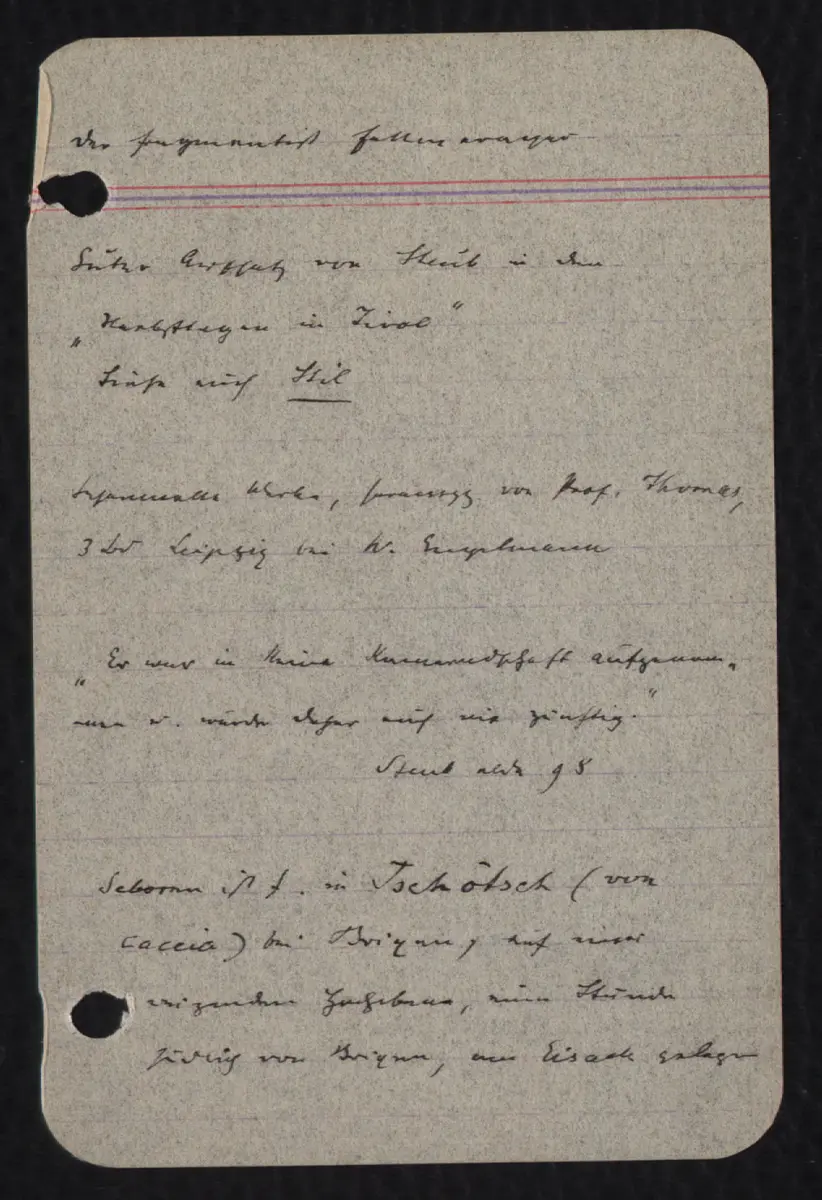 Der Fragmentist Fallmerayer
Guter Aufsatz von Steub in den
„Herbsttagen in Tirol"
Siehe auch Stil
Gesammelte Werke, herausgg von Prof. Thomas,
3 Bd Leipzig bei W. Engelmann
„Er war in keine Kameradschaft aufgenom-
men u. wurde daher auch nie zünftig."
Steub 98
Geboren ist F. in Tschötsch (von
caccia) bei Brixen, auf einer
reizenden Hochebene, eine Stunde
südlich von Brixen, am Eisack gelegen